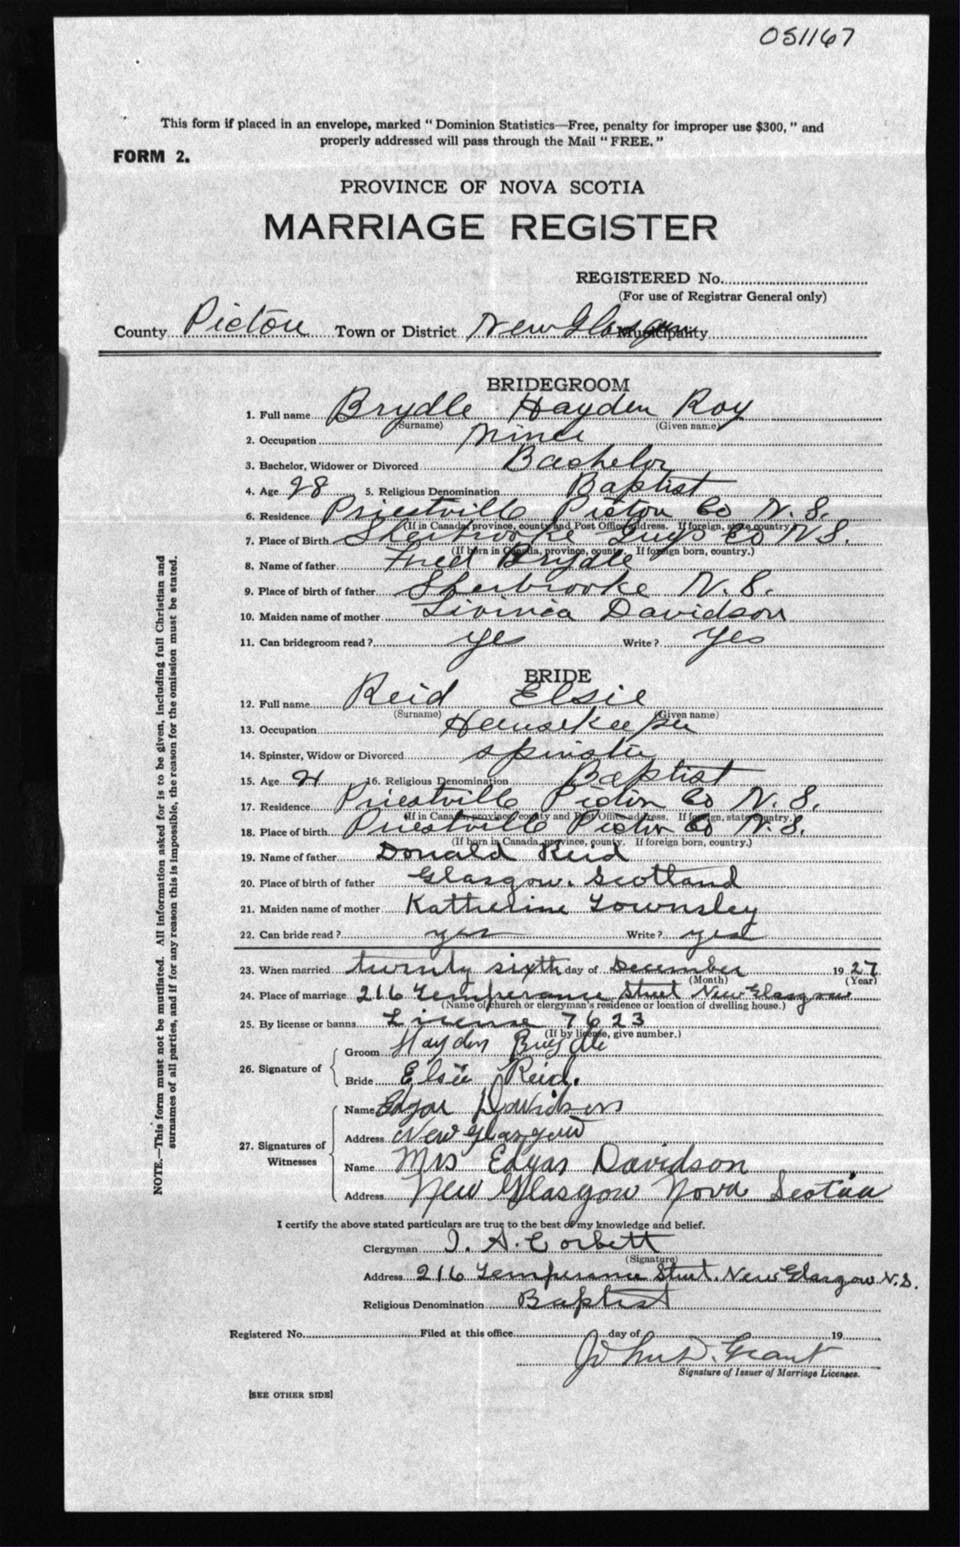 051167
This form if placed in an envelope, marked "Dominion Statistics—Free, penalty for improper use $300," and
properly addressed will pass through the Mail "FREE."
FORM 2.
PROVINCE OF NOVA SCOTIA
MARRIAGE REGISTER
REGISTERED No.
(For use of Registrar General only)
County Pictou Town or District New Glasgow Municipality
BRIDEGROOM
1. Full name Brydle Hayden Roy
(Surname) (Given name)
2. Occupation Miner
3. Bachelor, Widower or Divorced Bachelor
4. Age 28 5. Religious Denomination Baptist
6. Residence Priestville Pictou Co N. S.
(If in Canada, province, county and Post Office address. If foreign, state country.)
7. Place of Birth Sherbrooke Guys Co N.S.
(If born in Canada, province, county. If foreign born, country.)
8. Name of father Fred Brydle
9. Place of birth of father Sherbrooke N. S.
10. Maiden name of mother Davidson
11. Can bridegroom read? yes Write? yes
BRIDE
12. Full name Reid Elsie
(Surname) (Given name)
13. Occupation Housekeeper
14. Spinster, Widow or Divorced Spinster
15. Age 21 16. Religious Denomination Baptist
17. Residence Priestville Pictou Co N. S.
(If in Canada, province, county and Post Office address. If foreign, state country.)
18. Place of birth Priestville Pictou Co N. S.
(If born in Canada, province, county. If foreign born, country.)
19. Name of father Donald Reid
20. Place of birth of father Glasgow. Scotland
21. Maiden name of mother Katherine Townsley
22. Can bride read? yes Write? yes
23. When married twenty sixth day of December 1927
(Month) (Year)
24. Place of marriage 216 Temperance Street New Glasgow
(Name of church or clergyman's residence or location of dwelling house.)
25. By license or banns License 7623
(If by license, give number.)
26. Signature of
Groom Hayden Brydle
Bride Elsie Reid.
27. Signatures of
Witnesses
Name Edgar Davidson
Address New Glasgow
Name Mrs Edgar Davidson
Address New Glasgow Nova Scotia
I certify the above stated particulars are true to the best of my knowledge and belief.
Clergyman I. A. Corbett
(Signature)
Address 216 Temperance Street. New Glasgow N.S.
Religious Denomination Baptist
Registered No. Filed at this office day of 19
John D. Grant
Signature of Issuer of Marriage Licenses.
[SEE OTHER SIDE]
NOTE.—This form must not be mutilated. All information asked for is to be given, including full Christian and
surnames of all parties, and if for any reason this is impossible, the reason for the omission must be stated.